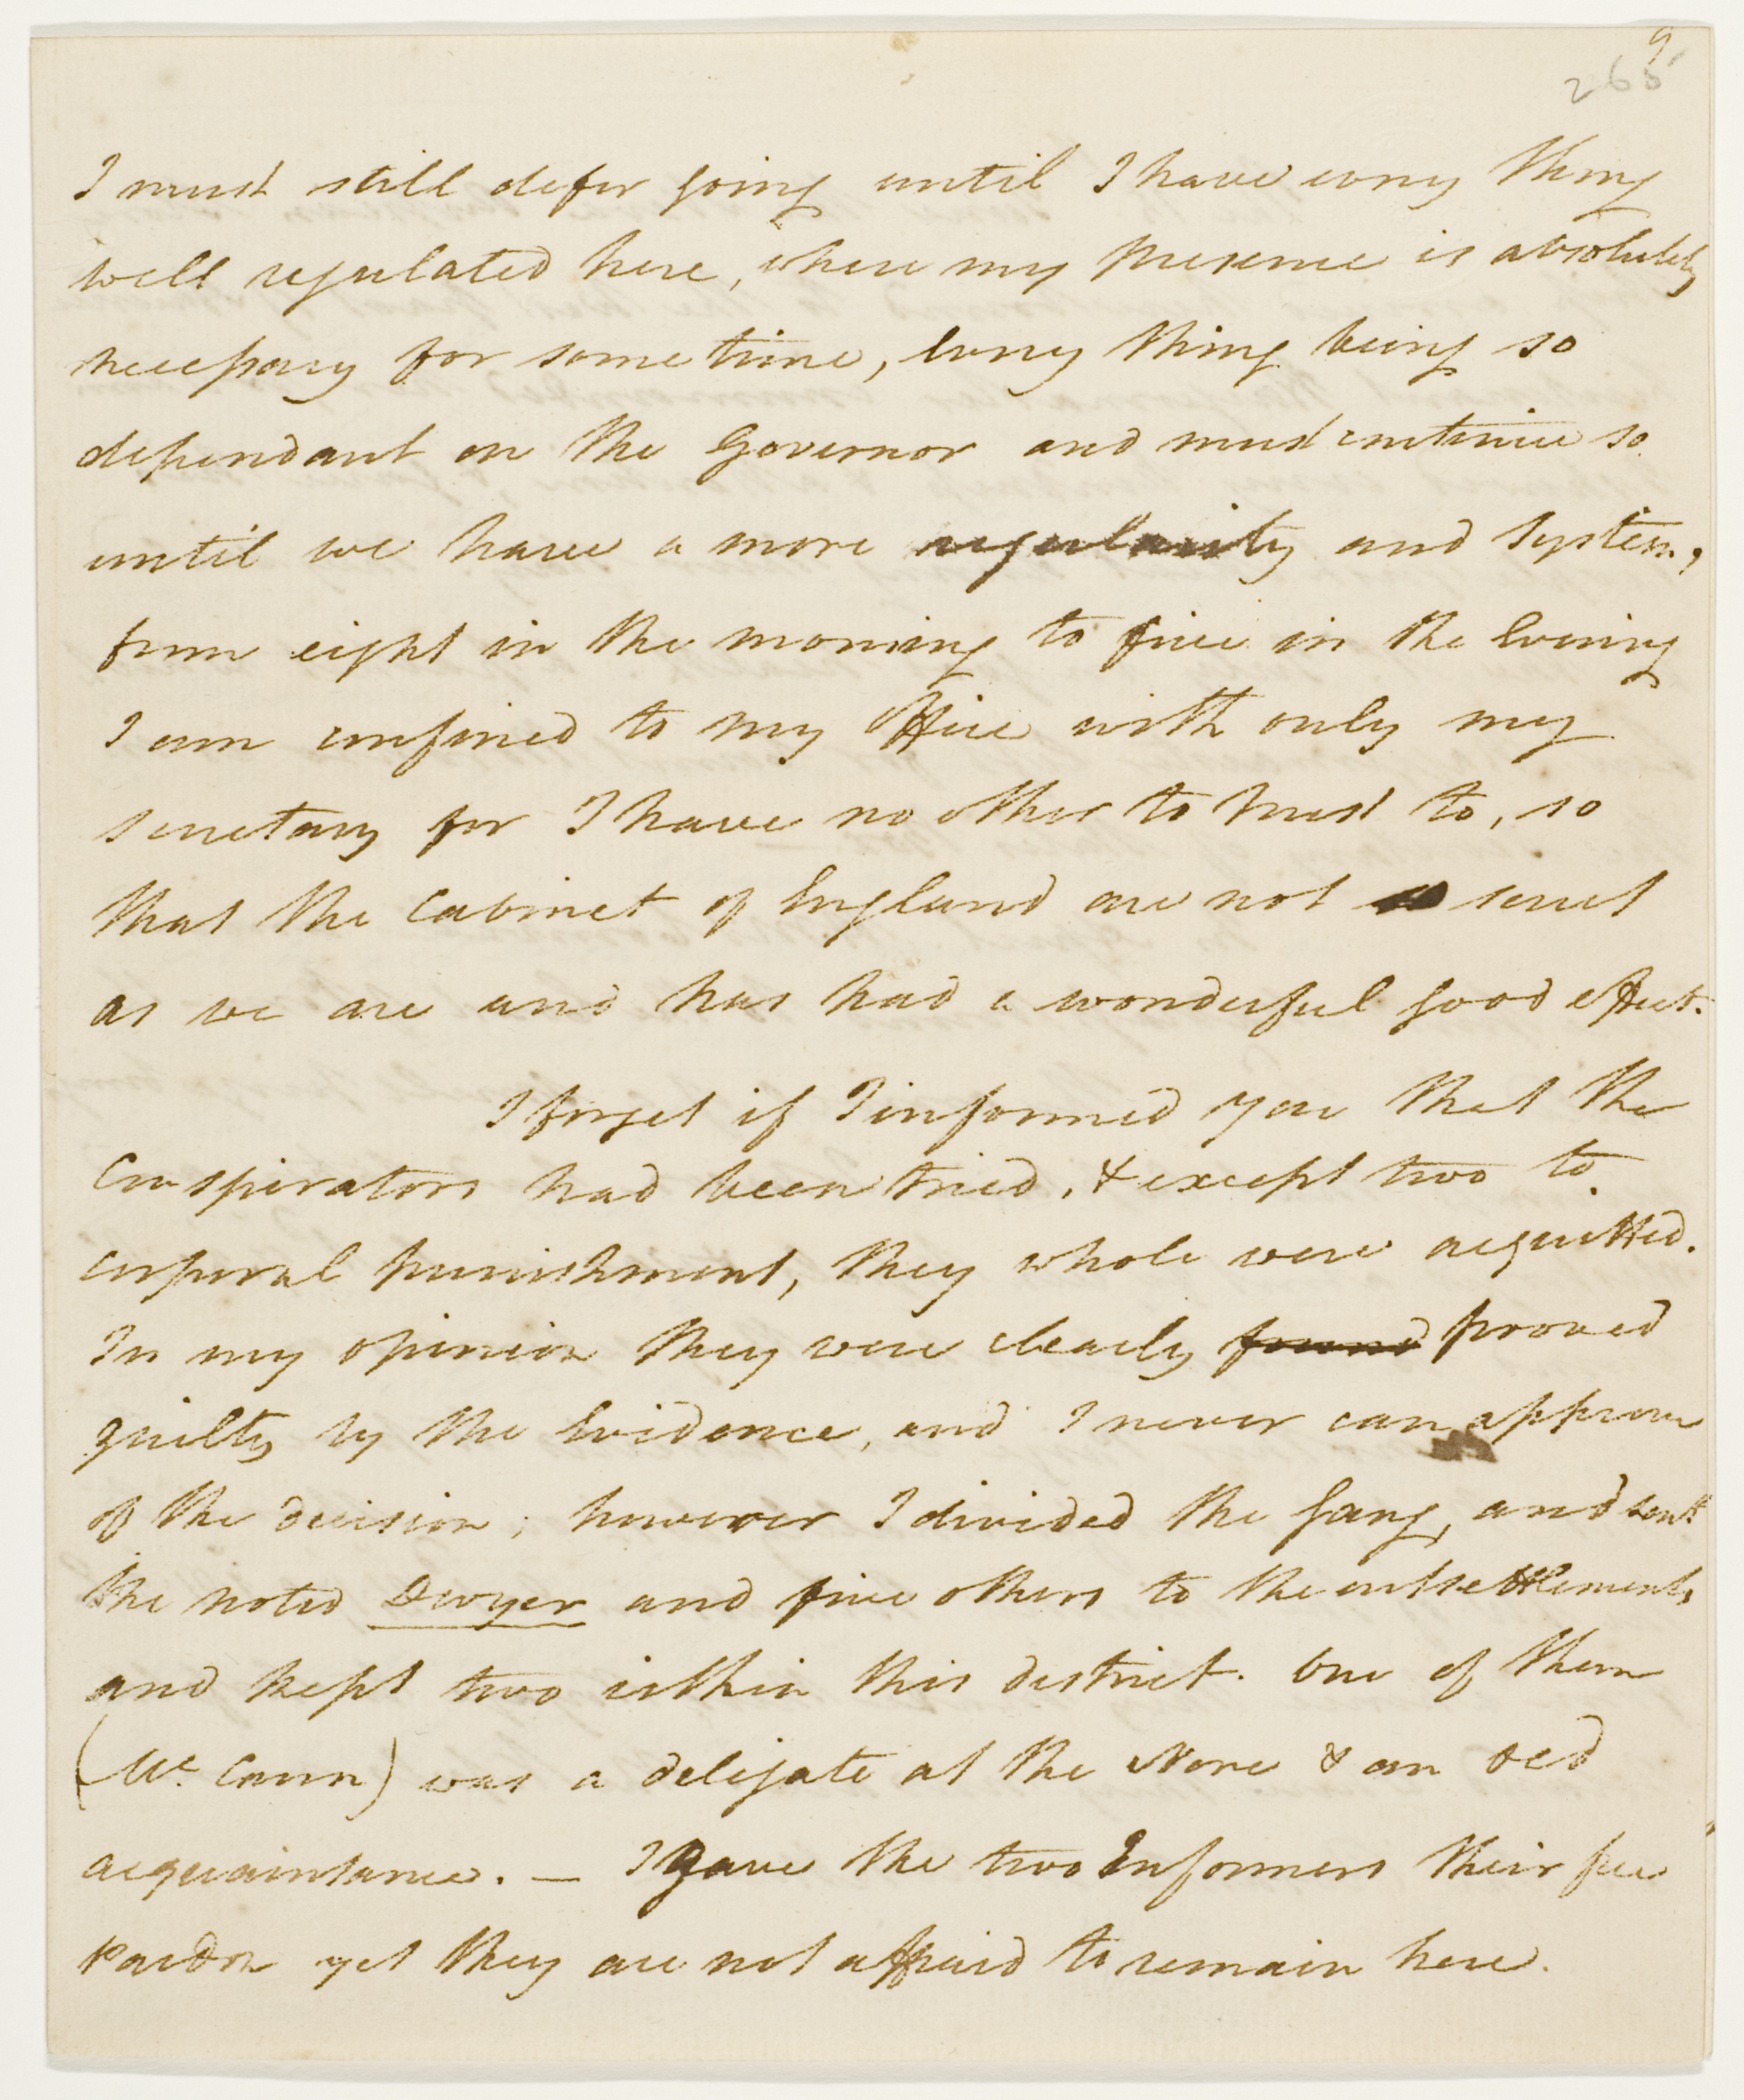 9
265
I must still defer going until I have every thing
well regulated here, where my presence is absolutely
necessary for some time, every thing being so
dependant on the Governor and must continue so
until we have a more regularity and System,
from eight in the morning to five in the Evening
I am confined to my Office with only my
secretary for I have no other to trust to, so
that the Cabinet of England are not so secret
as we are and has had a wonderful good effect.
I forget if I informed you that the
Conspirators had been tried, & except two to
corporal punishment, they whole were acquitted.
In my opinion they were clearly found proved
guilty by the Evidence, and I never can approve
of the decision; however I divided the gang, and sent
the noted Dwyer and five others to the outsettlements
and kept two within this district. One of them
(Mc. Cann) was a delegate at the Nore & an old
acquaintance. — I gave the two Informers their free
Pardon yet they are not affraid to remain here.